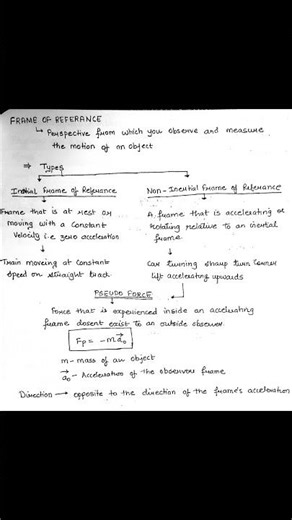 FRAME OF REFERANCE
↳ Perspective from which you observe and measure
the motion of an object
⇒ Types
Inertial Frame of Referance
Frame that is at rest or
moving with a constant
velocity i.e zero acceleration
Train moving at constant
speed on straight track
Non-Inertial Frame of Referance
A frame that is accelerating or
rotating relative to an inertial
frame
Car turning sharp turn
lift accelerating upwards
PSEUDO FORCE
Force that is experienced inside an accelerating
frame dosent exist to an outside observer.
Fp = -m a₀
m - mass of an object
a₀ - Acceleration of the observers frame
Direction → opposite to the direction of the frame's acceleration